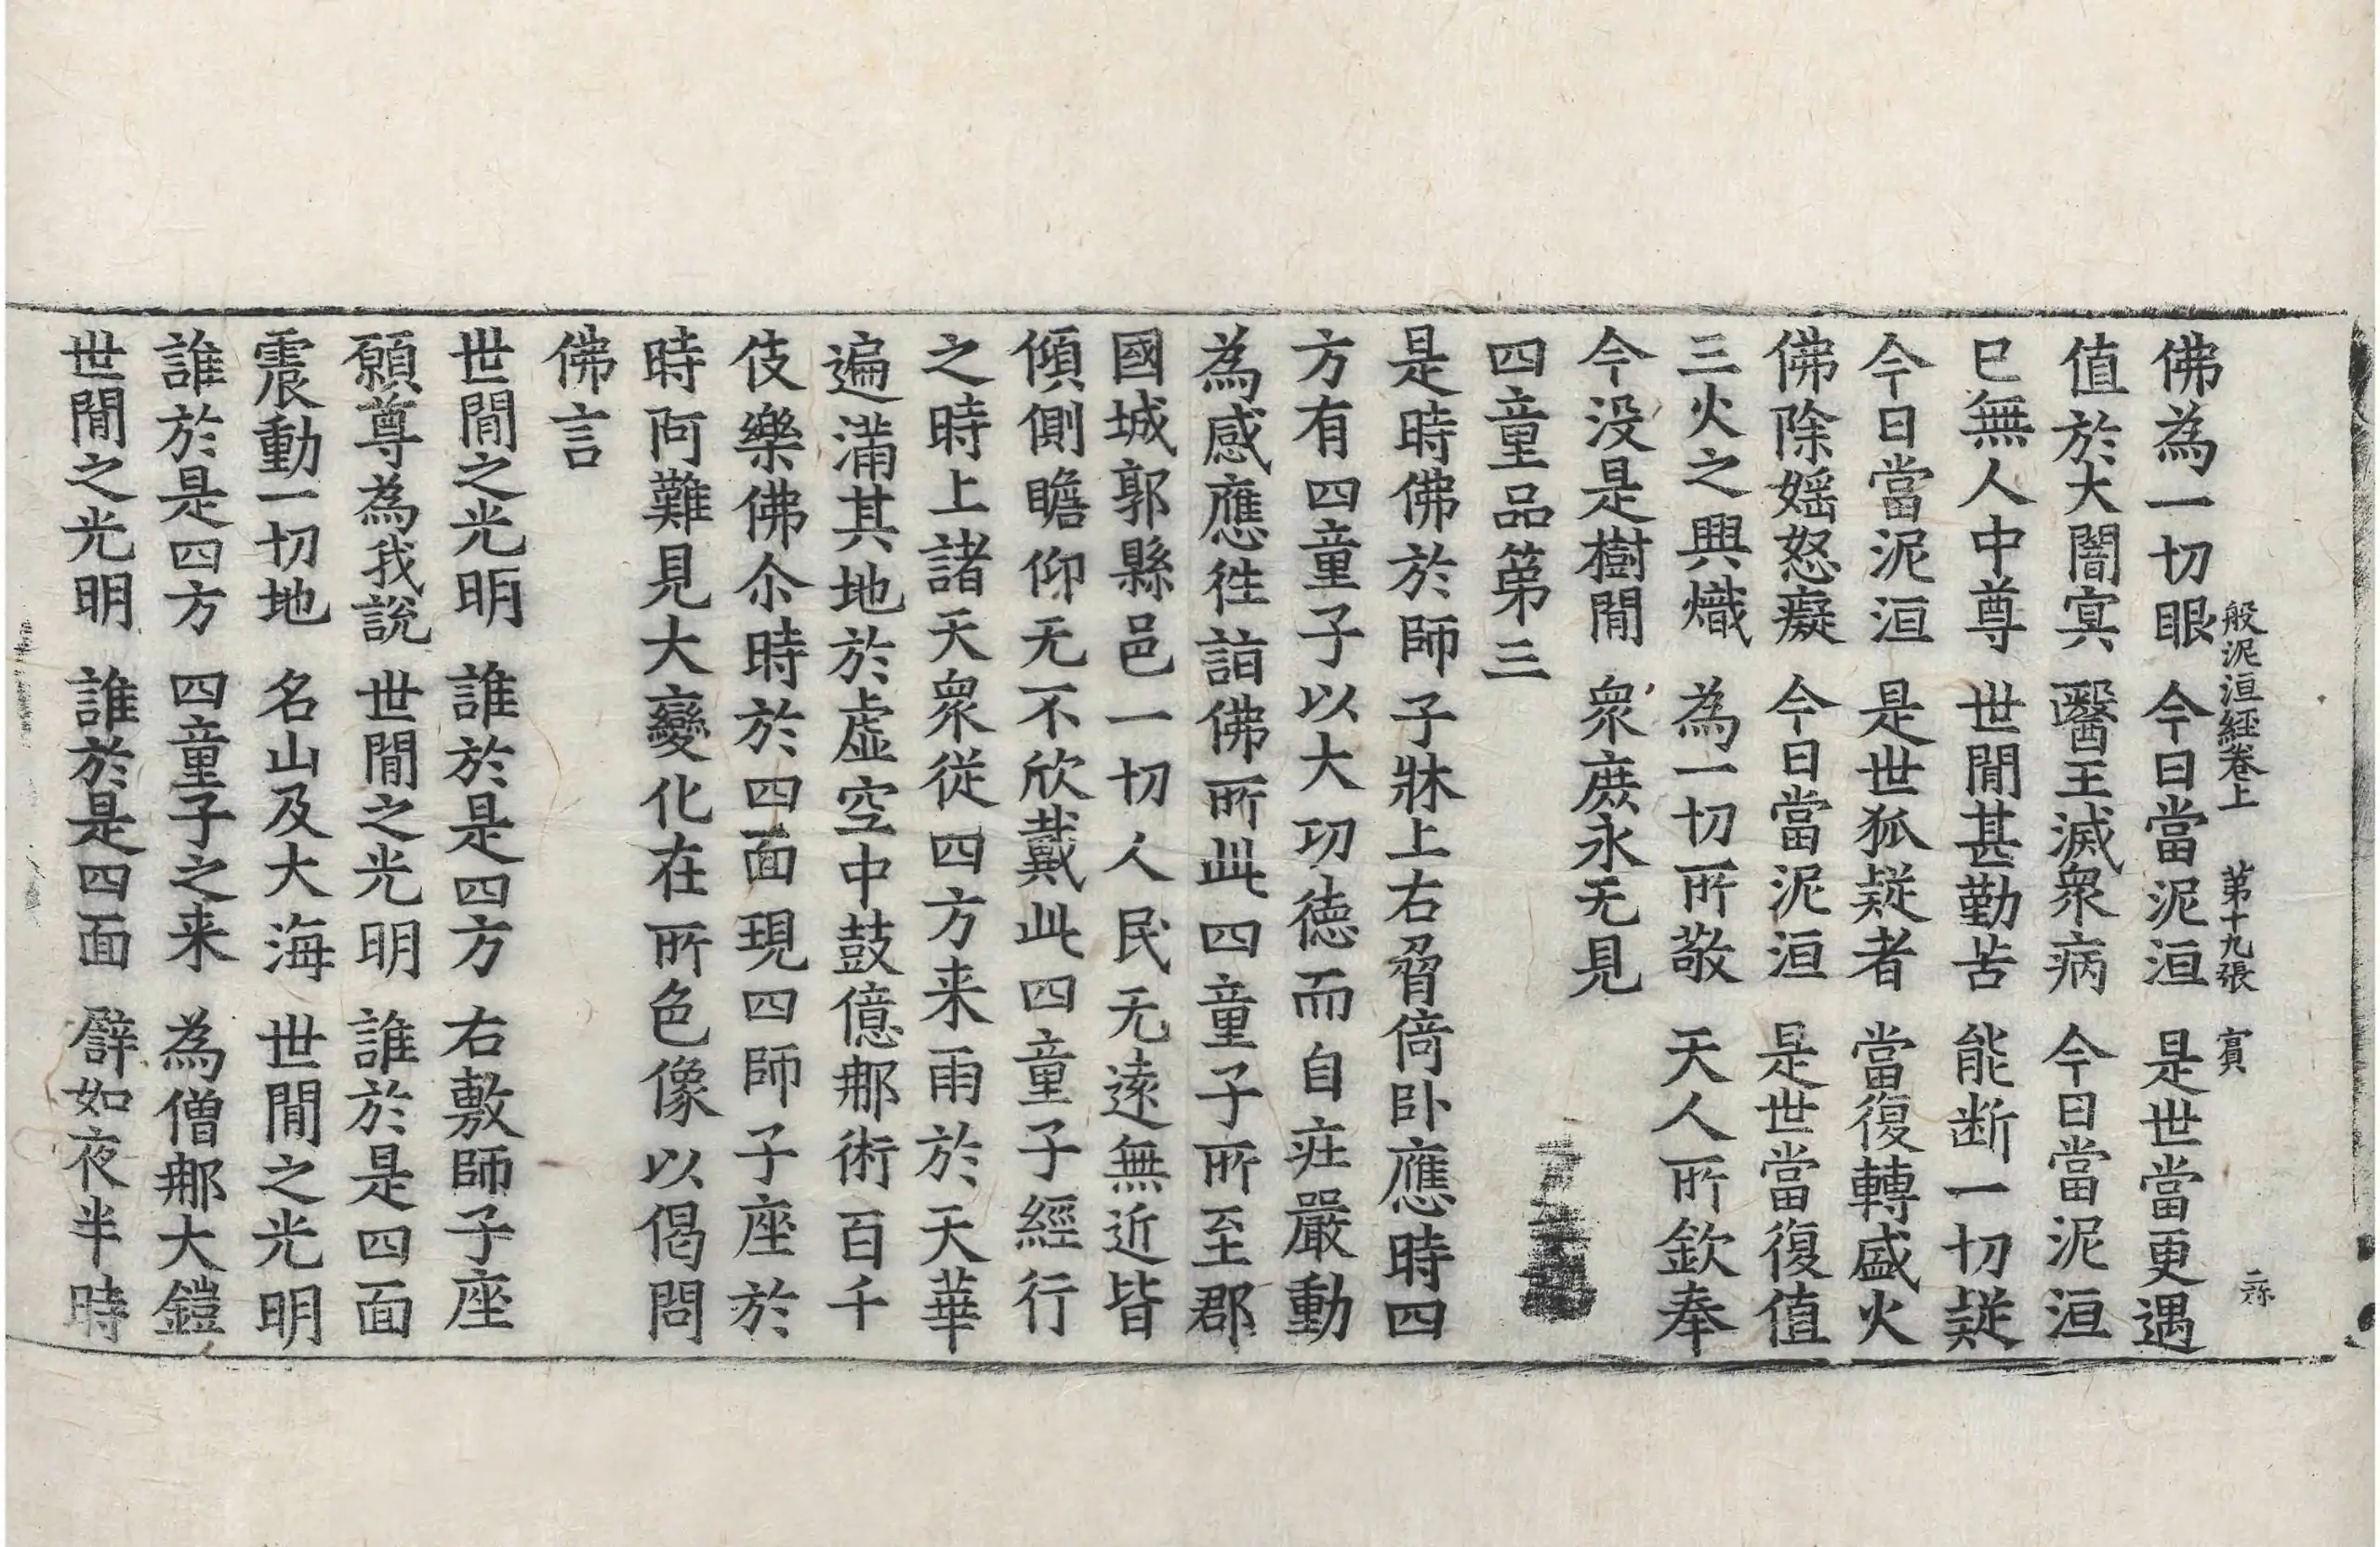 般泥洹經卷上 第十九張 賓
佛為一切眼 今日當泥洹 是世當更遇
值於大闇冥 醫王滅衆病 今日當泥洹
已無人中尊 世閒甚勤苦 能断一切疑
今日當泥洹 是世狐疑者 當復轉盛火
佛除婬怒癡 今日當泥洹 是世當復值
三火之興熾 為一切所敬 天人所欽奉
今没是樹閒 衆庶永无見
四童品第三
是時佛於師子牀上右脅倚卧應時四
方有四童子以大功德而自荘嚴動
為感應徃詣佛所此四童子所至郡
國城郭縣邑一切人民无遠無近皆
傾側瞻仰无不欣戴此四童子經行
之時上諸天衆從四方来雨於天華
遍滿其地於虛空中鼓億那術百千
伎樂佛尒時於四面現四師子座於
時阿難見大變化在所色像以偈問
佛言
世閒之光明 誰於是四方 右敷師子座
願尊為我說 世閒之光明 誰於是四面
震動一切地 名山及大海 世閒之光明
誰於是四方 四童子之来 為僧那大鎧
世閒之光明 誰於是四面 譬如夜半時